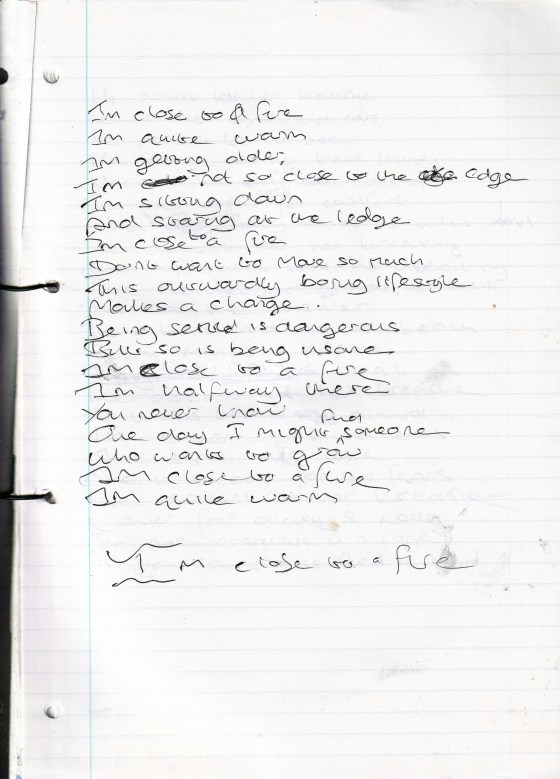 Im close to a fire
Im quite warm
Im getting older,
Im not so close to the edge
Im sitting down
And staring at the ledge
Im close to a fire
Dont want to move so much
This outwardly boring lifestyle
Makes a change.
Being settled is dangerous
But so is being insane
Im close to a fire
Im halfway there
You never know
One day I might find someone
who wants to grow
Im close to a fire
Im quite warm
Im close to a fire